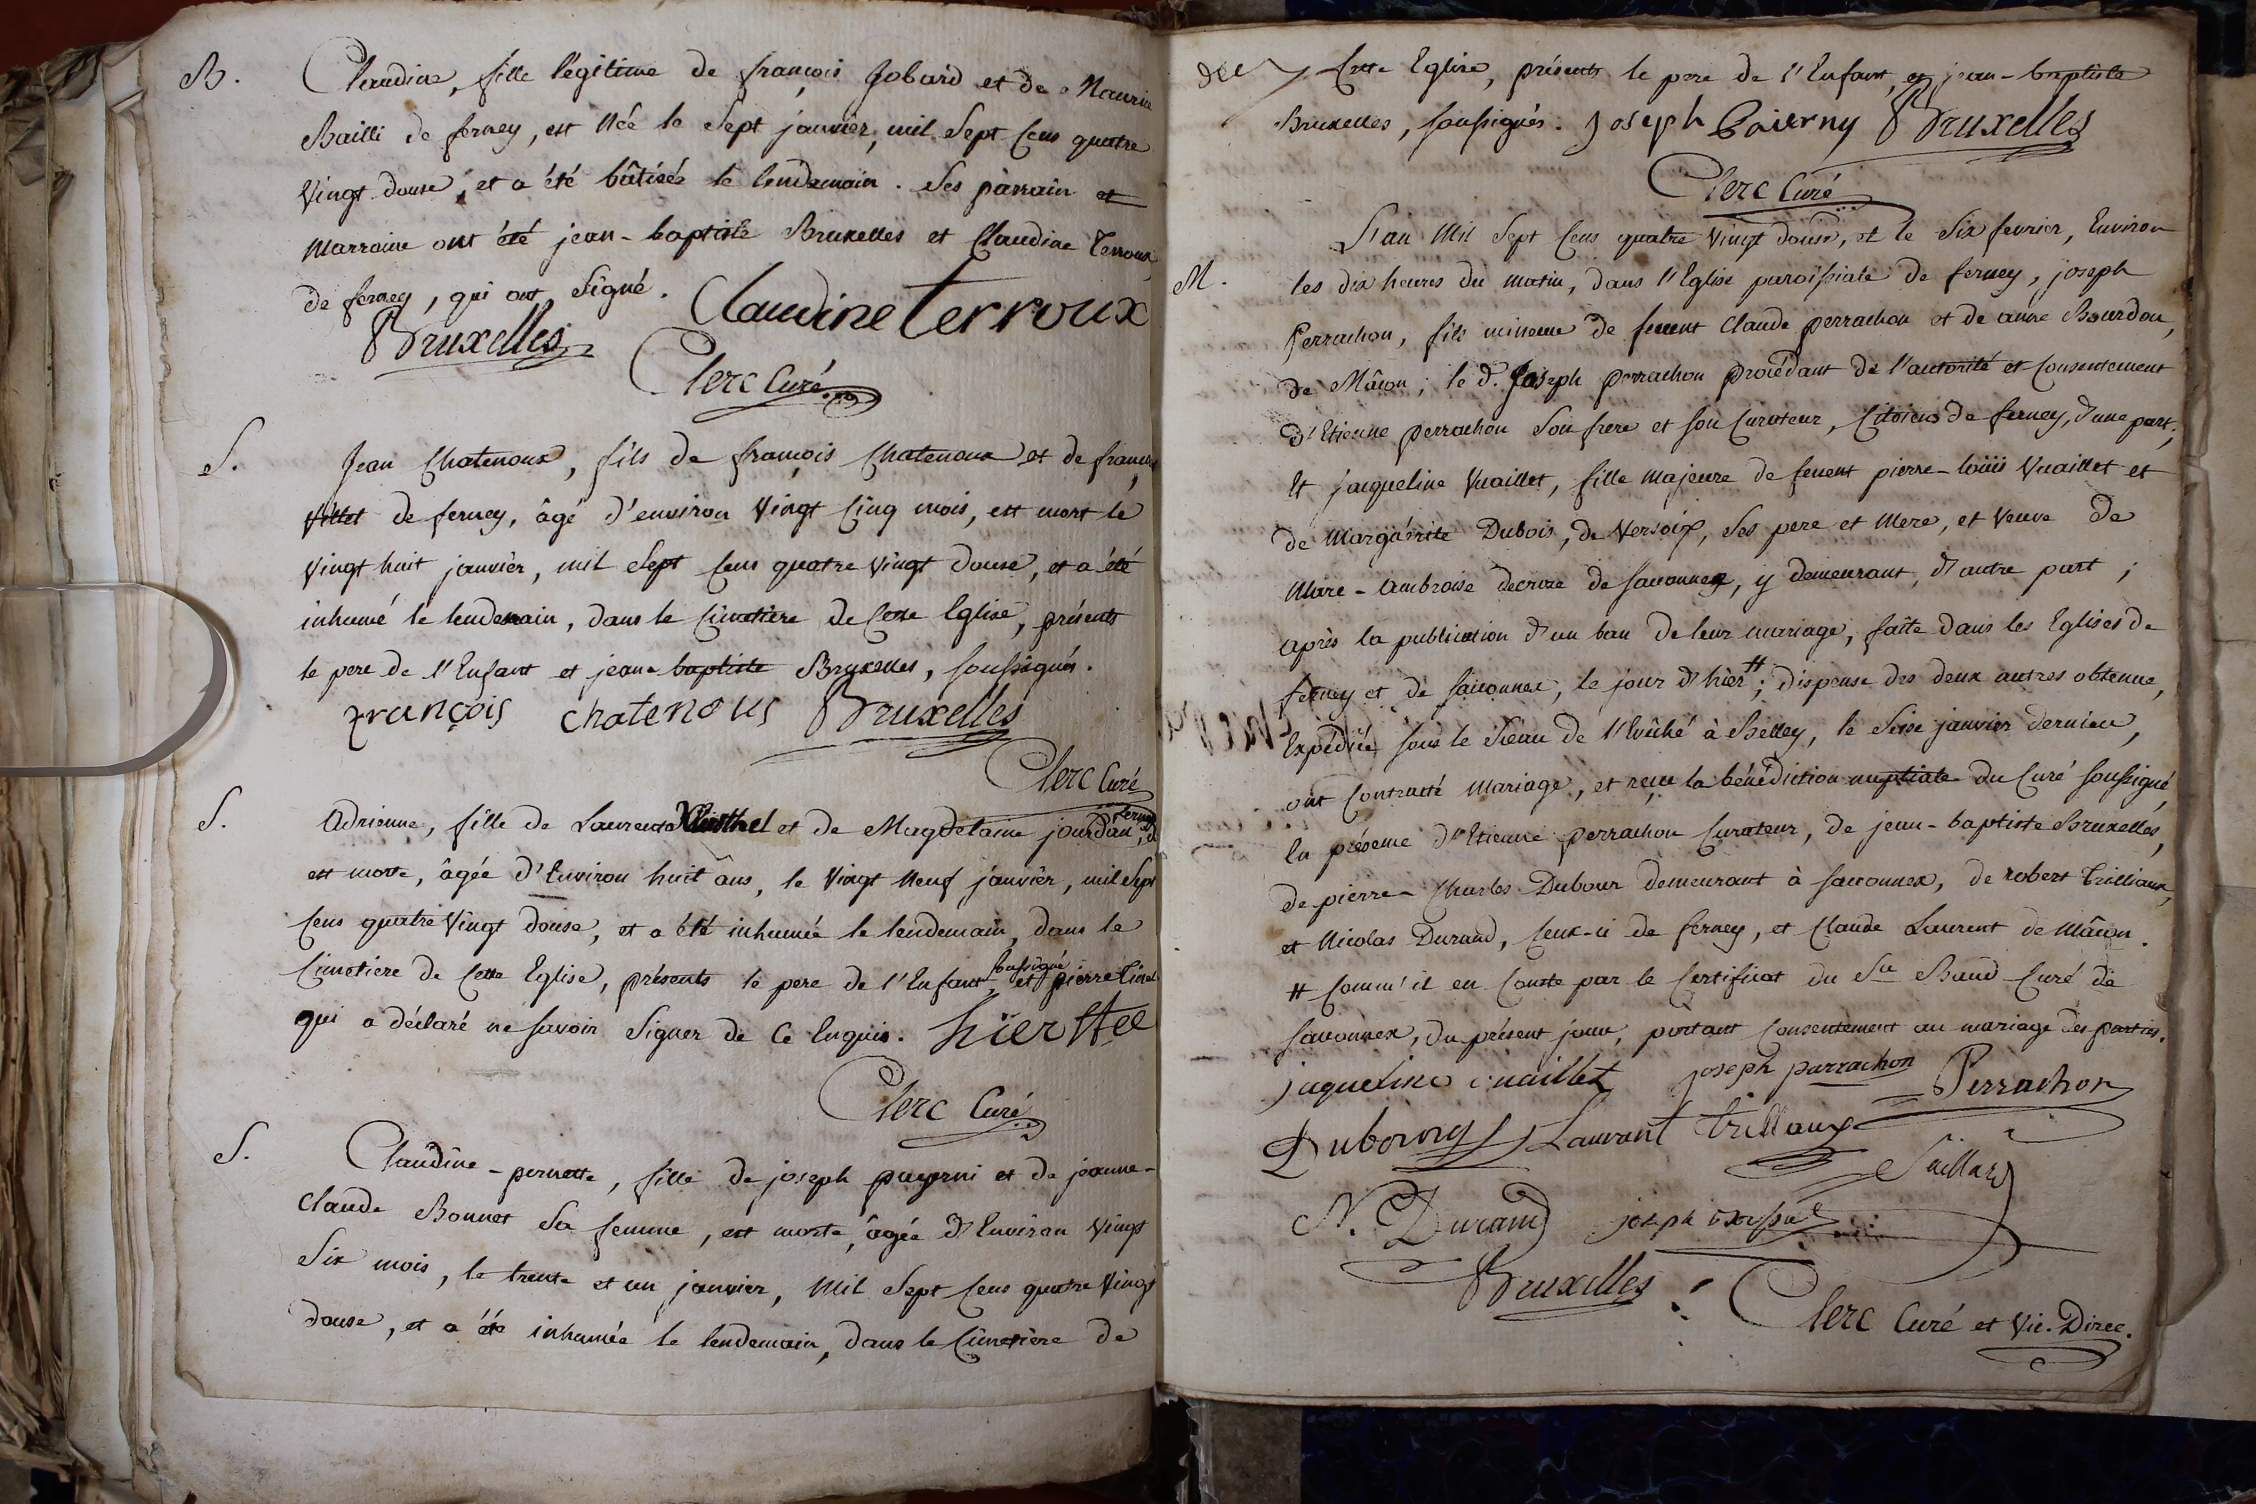 B. Claudine, fille légitime de françois Jobard et de Maurice
Bailli de ferney, est Née le Sept janvier, mil Sept Cens quatre
Vingt douse, et a été bâtisée le lendemain. Ses parrain et
Marraine ont été jean-baptiste Bruxelles et Claudine Terroux
de ferney, qui ont Signé. Claudine terroux
Bruxelles
Clerc Curé
S. Jean Chatenoux, fils de françois Chatenoux et de
Villet de ferney, âgé d'environ Vingt Cinq mois, est mort le
Vingt huit janvier, mil Sept Cens quatre Vingt douse, et a été
inhumé le lendemain, dans le Cimetière de Cette Eglise, présents
le pere de l'Enfant et jean-baptiste Bruxelles, soussignés.
françois chatenous Bruxelles
Clerc Curé
S. Adrienne, fille de Laurent et de Magdelaine jourdan, de ferney
est morte, âgée d'Environ huit ans, le Vingt Neuf janvier, mil Sept
Cens quatre Vingt douse, et a été inhumée le lendemain, dans le
Cimetiere de Cette Eglise, présents le pere de l'Enfant soussigné et pierre
qui a déclaré ne savoir Signer de Ce Enquis.
Clerc Curé
S. Claudine-pernette, fille de joseph payerni et de jeanne-
Claude Bonnet Sa femme, est morte, âgée d'Environ Vingt
Six mois, le trente et un janvier, Mil Sept Cens quatre Vingt
douse, et a été inhumée le lendemain, dans le Cimetière de
Cette Eglise, présents le pere de l'Enfant, et jean-baptiste
Bruxelles, soussignés. Joseph Paierny Bruxelles
Clerc Curé
L'an Mil Sept Cens quatre Vingt douse, et le Six fevrier, Environ
M. les dix heures du matin, dans l'Eglise paroissiale de ferney, joseph
Perrachon, fils mineur de feuent Claude perrachon et de anne Bourdon,
de Mâcon; le d. Joseph perrachon procédant de l'autorité et Consentement
d'Etienne perrachon Son frere et son Curateur, Citoiens de ferney, d'une part;
Et jacqueline Vuaillet, fille Majeure de feuent pierre-loüis Vuaillet et
de Marguérite Dubois, de Versoix, Ses pere et Mere, et Veuve de
Marc-Ambroise decroze de sauonnex, y demeurant, d'autre part;
après la publication d'un ban de leur mariage, faite dans les Eglises de
ferney et de sauonnex, le jour d'hièr #; dispense des deux autres obtenue,
Expédiée sous le Sceau de l'Evêché à Belley, le Seise janvier dernier,
ont Contracté Mariage, et reçu la bénédiction nuptiale du Curé soussigné,
En présence d'Etienne perrachon Curateur, de jean-baptiste Bruxelles,
de pierre-Charles Dubour demeurant à sauonnex, de robert Trilliaux,
et Nicolas Durand, Ceux-ci de ferney, et Claude Laurent de Mâcon.
# Comm' il en Conste par le Certificat du Sr Baud Curé de
sauonnex, du présent jour, portant Consentement au mariage des parties.
jaqueline vuaillet joseph parrachon Perrachon
Dubourg Laurant trillaux
Saillard
N. Durand joseph
Bruxelles
Clerc Curé et Vic. Direc.